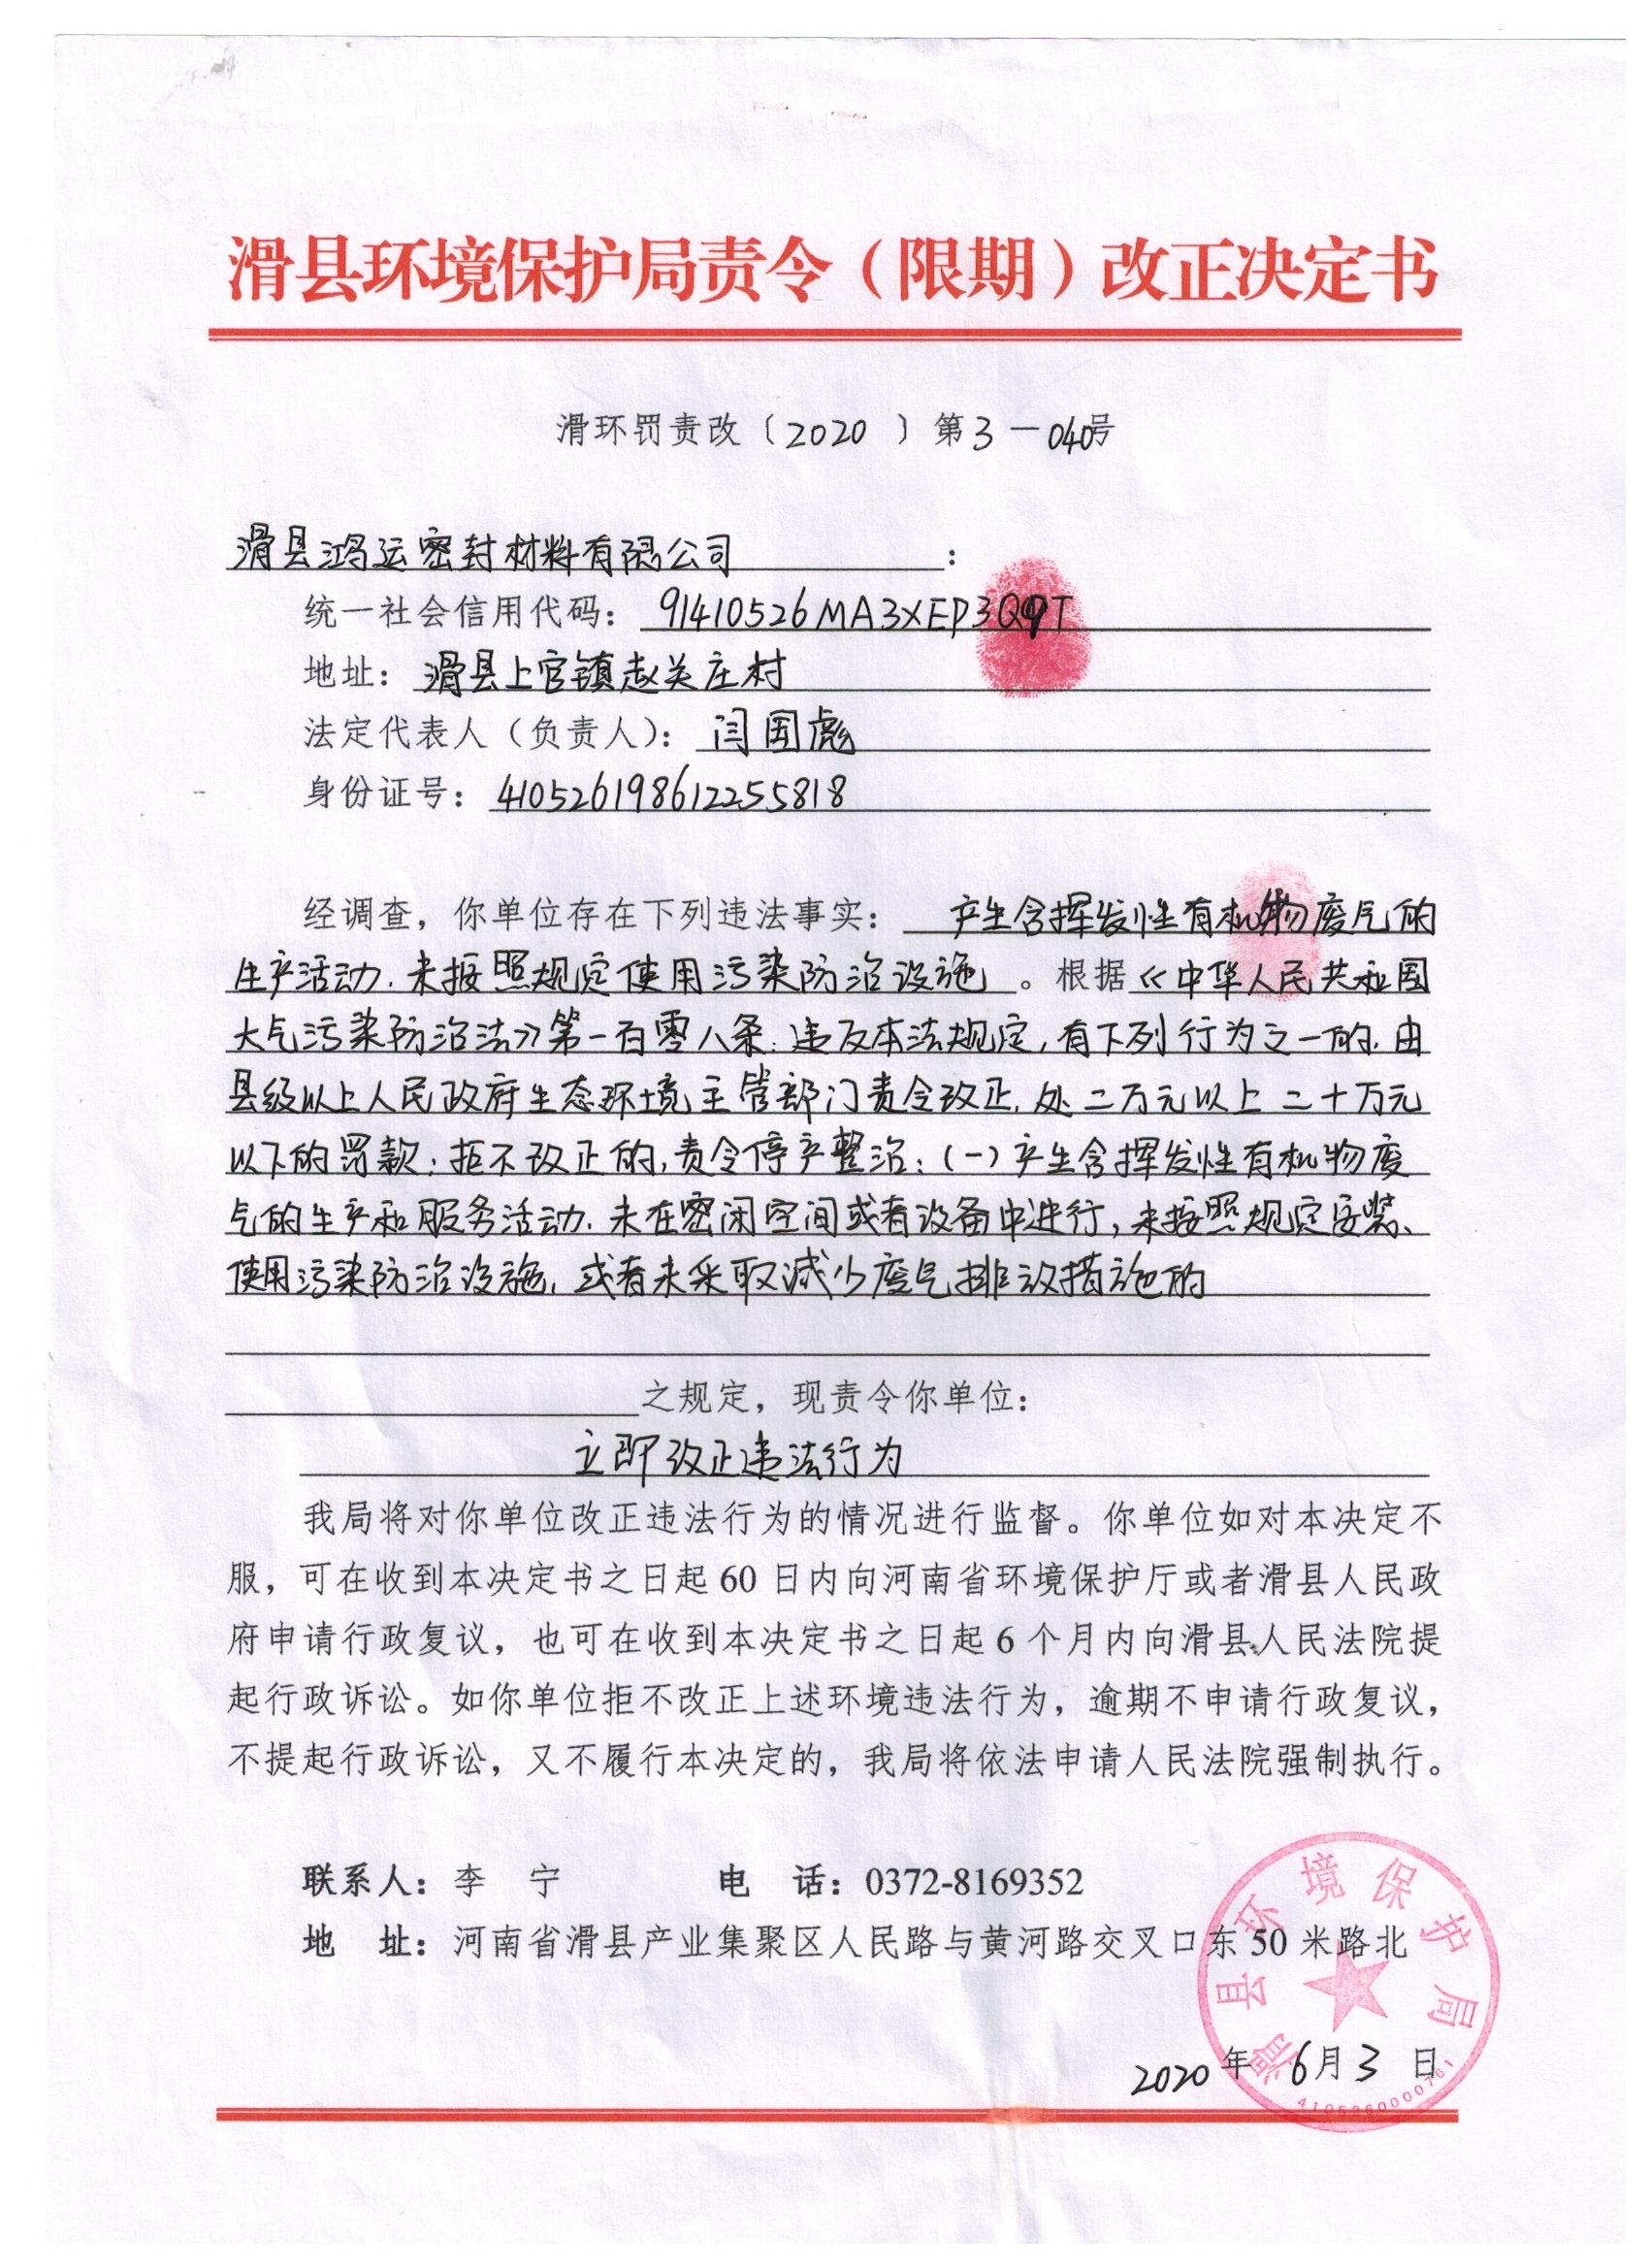 滑县环境保护局责令（限期）改正决定书
滑环罚责改〔2020 〕第3－040号
滑县鸿运密封材料有限公司：
统一社会信用代码：91410526MA3XEP3Q9T
地址：滑县上官镇赵关庄村
法定代表人（负责人）：闫国彪
身份证号：410526198612255818
经调查，你单位存在下列违法事实：产生含挥发性有机物废气的
生产活动.未按照规定使用污染防治设施。根据《中华人民共和国
大气污染防治法》第一百零八条:违反本法规定,有下列行为之一的.由
县级以上人民政府生态环境主管部门责令改正.处二万元以上二十万元
以下的罚款;拒不改正的,责令停产整治:(一)产生含挥发性有机物废
气的生产和服务活动.未在密闭空间或者设备中进行,未按照规定安装、
使用污染防治设施,或者未采取减少废气排放措施的
之规定，现责令你单位：
立即改正违法行为
我局将对你单位改正违法行为的情况进行监督。你单位如对本决定不
服，可在收到本决定书之日起 60 日内向河南省环境保护厅或者滑县人民政
府申请行政复议，也可在收到本决定书之日起 6 个月内向滑县人民法院提
起行政诉讼。如你单位拒不改正上述环境违法行为，逾期不申请行政复议，
不提起行政诉讼，又不履行本决定的，我局将依法申请人民法院强制执行。
联系人：李 宁 电 话：0372-8169352
地 址：河南省滑县产业集聚区人民路与黄河路交叉口东 50 米路北
滑县环境保护局
2020年6月3日
4105260000761